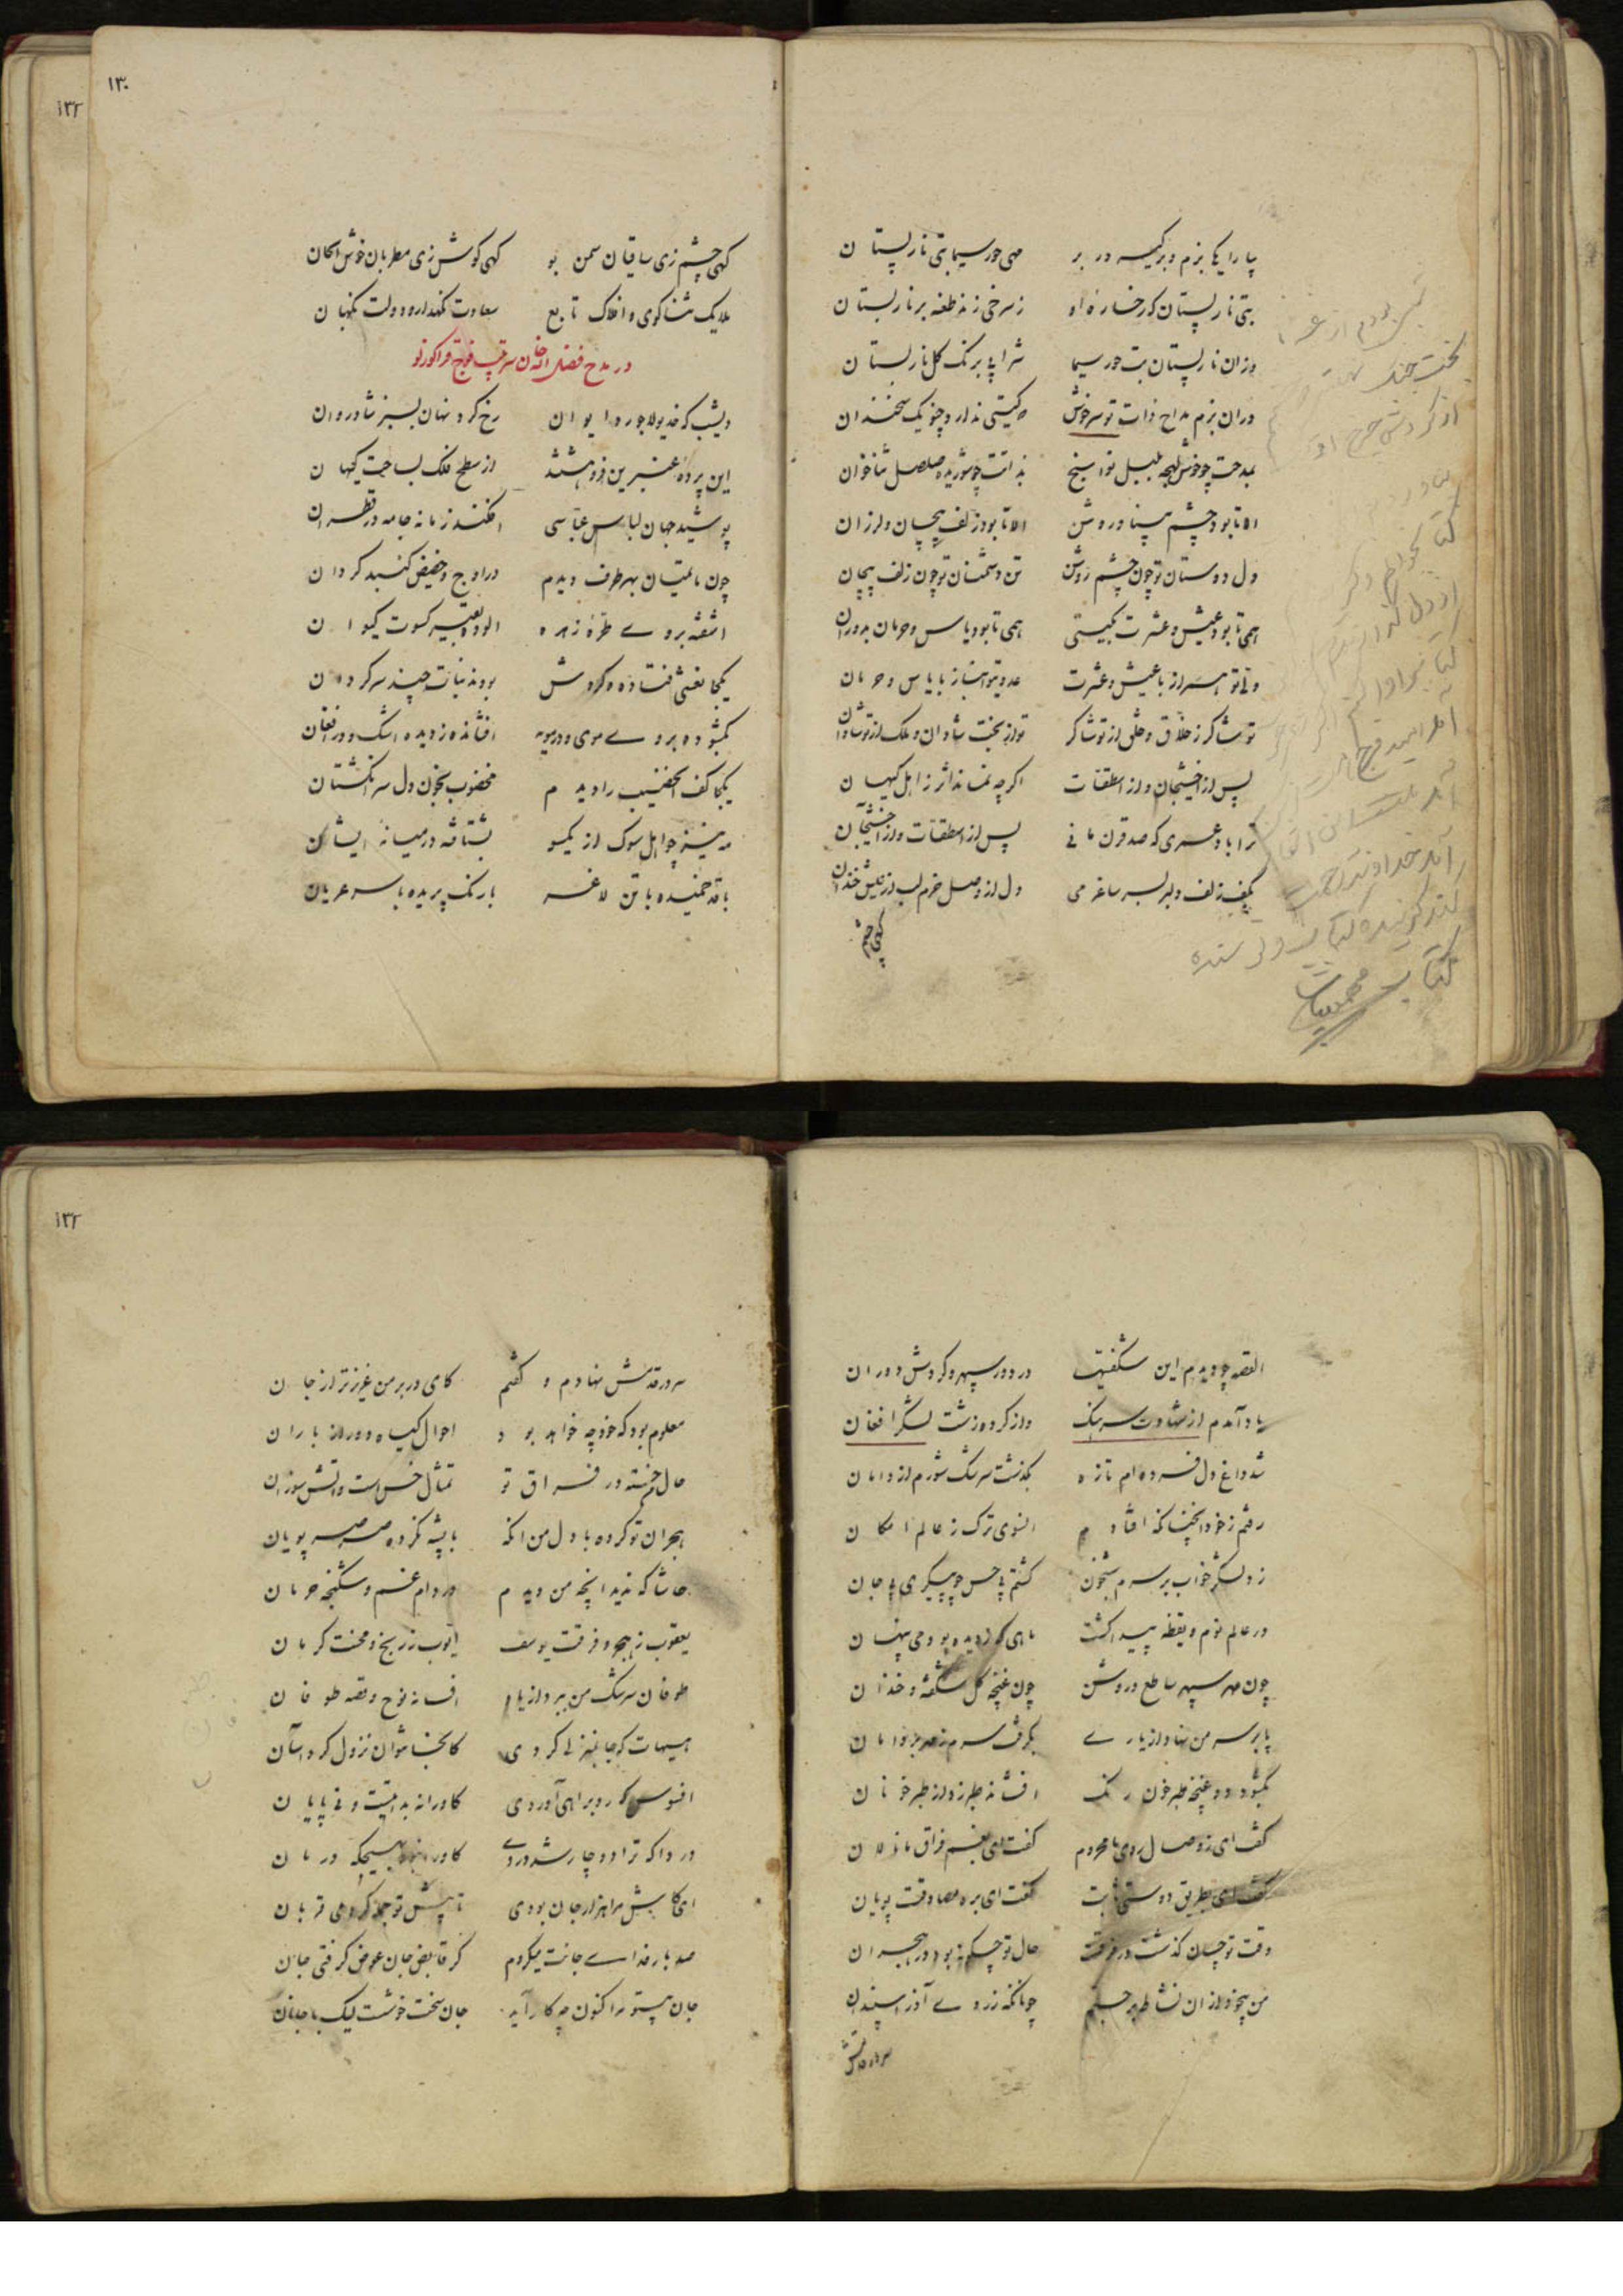 بیارای بزم و برگیر در بر مهی حور سیما بتی نارپستان
بتی نارپستان کز رخساره او ز سرخی زند طعنه بر نارپستان
وزان نارپستان بت حور سیما شرابی برنک کل نارپستان
دران بزم مداح ذات تو سرخوش که کیتی ندارد چنو یک سخندان
بمدحت چو خوش لهجه بلبل نواسنج بذاتت چو شوریده صلصل ثناخوان
الا تا بود چشم بینا و روشن الا تا بود زلف پیچان و لرزان
دل دوستان تو چون چشم روشن تن دشمنان تو چون زلف پیچان
همی تا بود عیش و عشرت بکیتی همی تا بود یاس و حرمان بدوران
ولی تو همراز با عیش و عشرت عدوی تو انباز با یاس و حرمان
تو شاکر ز خلاق و خلق از تو شاکر تو از بخت شادان و ملک از تو شادان
پس از اخشیجان و از اسطقسات اکرچه نماند اثر ز اهل کیهان
ترا باد عمری که صد قرن مانی پس از اسطقسات و از اخشیجان
بکف زلف دلبر بسر ساغر می دل از وصل خرم لب از عیش خندان
کهی چشم
۱۳۰
کهی چشم زی ساقیان سمن بو کهی کوش زی مطربان خوش الحان
ملایک ثناکوی و افلاک تابع سعادت نکهدار و دولت نکهبان
در مدح فضل الله خان سرتیپ فوج قراکوزلو
دیشب که خدیو لاجورد ایوان رخ کرد نهان بسبز شادروان
این پرده عنبرین فروهشتند از سطح فلک بساحت کیهان
پوشید جهان لباس عباسی افکند زمانه جامه در قطران
چون ماتمیان بهر طرف دیدم در اوج و حضیض کنبد کردان
اشفته بروی طره زهره الوده بقیر کسوت کیوان
یکجا نعشی فتاده و کردش بودند بنات چند سرکردان
بکشوده بروی موی و در مویه افشانده ز دیده اشک و در افغان
یکجا کف الخضیب را دیدم مخضوب بخون دل سر انکشتان
مه نیز چو اهل سوک از یکسو بشتافته در میانه ایشان
با قد خمیده با تن لاغر با رنک پریده با سر عریان
القصه چو دیدم این شکفتیها در دور سپهر و کردش دوران
یاد آمدم از شهادت سرهنک واز کرده زشت لشکر افغان
شد داغ دل فسرده ام تازه بکذشت سرشک شورم از دامان
رفتم ز خود انچنانکه افتادم انسوی ترک ز عالم امکان
زد لشکر خواب بر سرم شبخون کشتم بی حس چو پیکری بی جان
در عالم نوم و یقظه پیدا کشت ماهی که ز دیده بودمی پنهان
چون مهر سپهر ساطع و روشن چون غنچه کل شکفته و خندان
پا بر سر من نهاد از یاری بکرفت سرم ز مهر بر دامان
بکشود دو غنچه طبرخون رنک افشاند طبرزد از طبرخونان
کفت ای ز وصال روی ما محروم کفت ای بغم فراق ما نالان
کفت ای بطریق دوستی ثابت کفت ای بره مصادقت پویان
وقت تو چسان کذشت در فرقت حال تو چکونه بود در هجران
من بیخود از ان نشاط برجستم چونانکه ز روی آذر اسپندان
سر در قدمش
۱۳۲
سر در قدمش نهادم و کفتم کای در بر من عزیزتر از جان
معلوم بود که خود چه خواهد بود احوال کیاه دور از باران
حال من خسته در فراق تو تمثال خس است و اتش سوزان
هجران تو کرده با دل من انکه با پشه نکرده صرصر پویان
حاشا که ندید انچه من دیدم در دام غم و شکنجه حرمان
یعقوب ز هجر و فرقت یوسف ایوب ز رنج و محنت کرمان
طوفان سرشک من ببرد از یاد افسانه نوح و قصه طوفان
هیهات که جا بمنزلی کردی کانجا نتوان نزول کرد آسان
افسوس که رو براهی آوردی کاورا نه بدایت و نی پایان
دردا که ترا دوچار شد دردی کاورا نبود بهیچکه درمان
ای کاش مرا هزار جان بودی تا پیش تو جمله کردمی قربان
صد بار فدای جانت میکردم کر قابض جان عوض کرفتی جان
جان بیتو مرا کنون چه کار آید جان سخت خوشست لیک با جانان